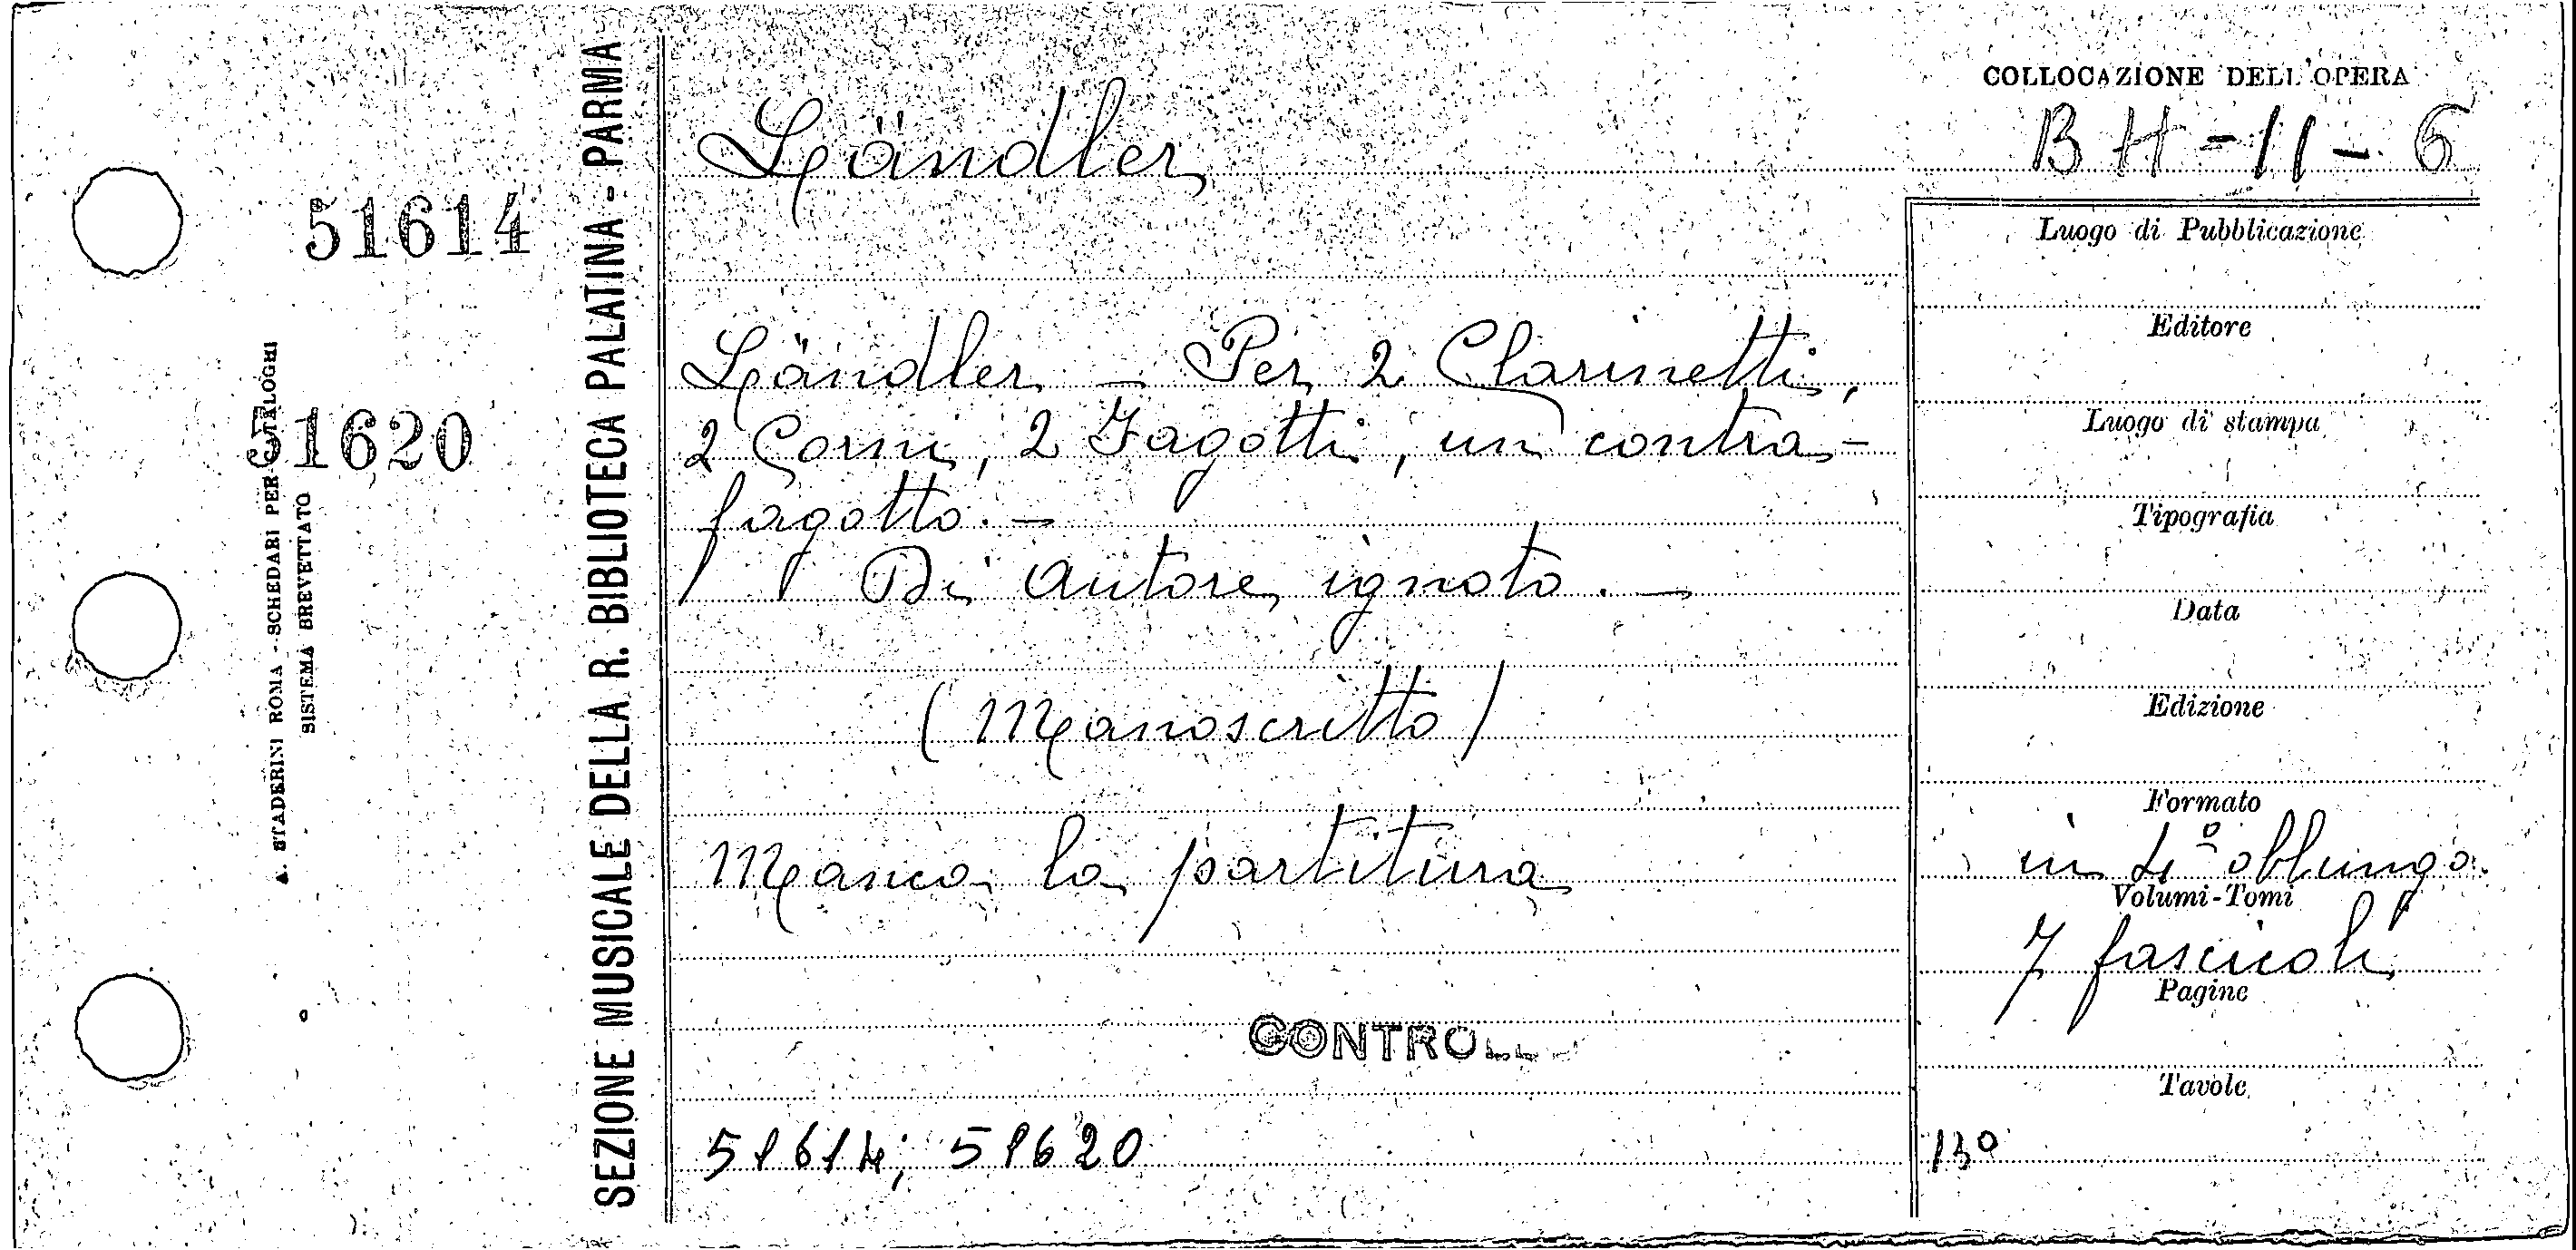 51614
51620
A. STADERINI ROMA - SCHEDARI PER CATALOGHI
SISTEMA BREVETTATO
SEZIONE MUSICALE DELLA R. BIBLIOTECA PALATINA - PARMA
Ländler
Ländler – Per 2 Clarinetti,
2 Corni, 2 Fagotti, un contra-
fagotto. –
Di autore ignoto. –
(Manoscritto)
Manca la partitura
CONTROLL
51614; 51620
COLLOCAZIONE DELL'OPERA
BH-11-6
Luogo di Pubblicazione
Editore
Luogo di stampa
Tipografia
Data
Edizione
Formato
in 4º oblungo.
Volumi-Tomi
7 fascicoli
Pagine
Tavole